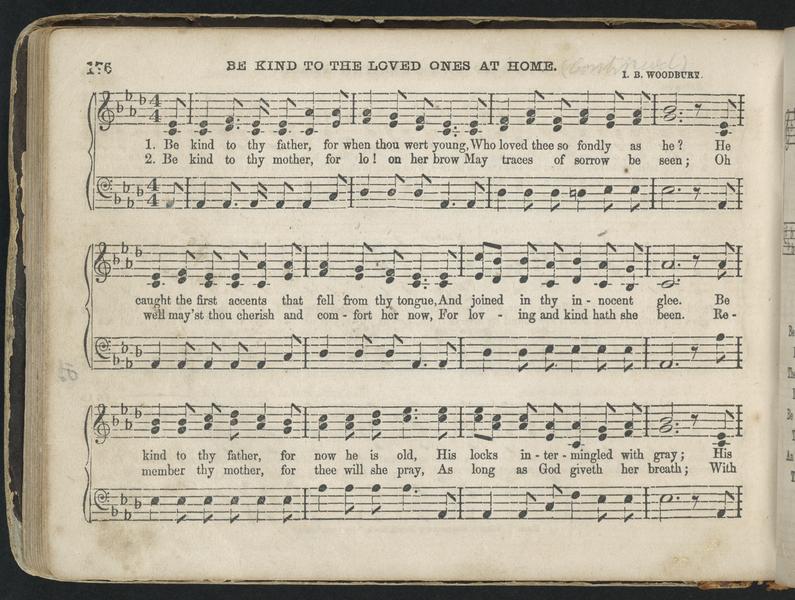 176 BE KIND TO THE LOVED ONES AT HOME. (Continued)
I. B. WOODBURY.
1. Be kind to thy father, for when thou wert young, Who loved thee so fondly as he? He
2. Be kind to thy mother, for lo! on her brow May traces of sorrow be seen; Oh
caught the first accents that fell from thy tongue, And joined in thy in - nocent glee. Be
well may'st thou cherish and com - fort her now, For lov - ing and kind hath she been. Re -
kind to thy father, for now he is old, His locks in - ter - mingled with gray; His
member thy mother, for thee will she pray, As long as God giveth her breath; With